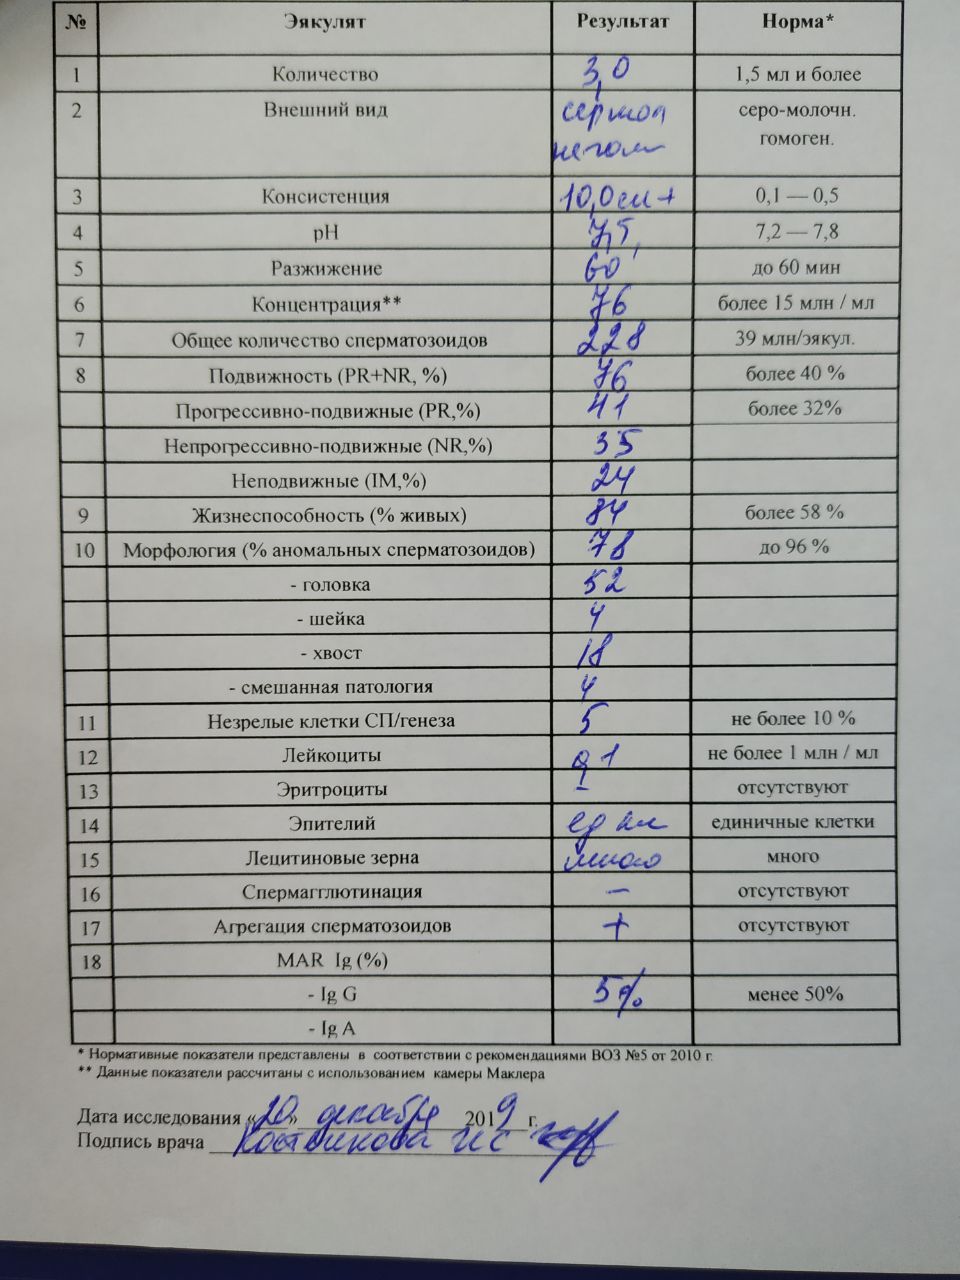 № Эякулят Результат Норма*
1 Количество 3,0 1,5 мл и более
2 Внешний вид серо-молочн.
гомоген.
3 Консистенция 10,0 см + 0,1 — 0,5
4 pH 7,5 7,2 — 7,8
5 Разжижение 60 до 60 мин
6 Концентрация** 76 более 15 млн / мл
7 Общее количество сперматозоидов 228 39 млн/эякул.
8 Подвижность (PR+NR, %) 76 более 40 %
Прогрессивно-подвижные (PR,%) 41 более 32%
Непрогрессивно-подвижные (NR,%) 35
Неподвижные (IM,%) 24
9 Жизнеспособность (% живых) 84 более 58 %
10 Морфология (% аномальных сперматозоидов) 78 до 96 %
- головка 52
- шейка 4
- хвост 18
- смешанная патология 4
11 Незрелые клетки СП/генеза 5 не более 10 %
12 Лейкоциты 0,1 не более 1 млн / мл
13 Эритроциты - отсутствуют
14 Эпителий ед кл единичные клетки
15 Лецитиновые зерна много много
16 Спермагглютинация - отсутствуют
17 Агрегация сперматозоидов + отсутствуют
18 MAR Ig (%)
- Ig G 5% менее 50%
- Ig A
* Нормативные показатели представлены в соответствии с рекомендациями ВОЗ №5 от 2010 г.
** Данные показатели рассчитаны с использованием камеры Маклера
Дата исследования «20» декабря 2019 г.
Подпись врача